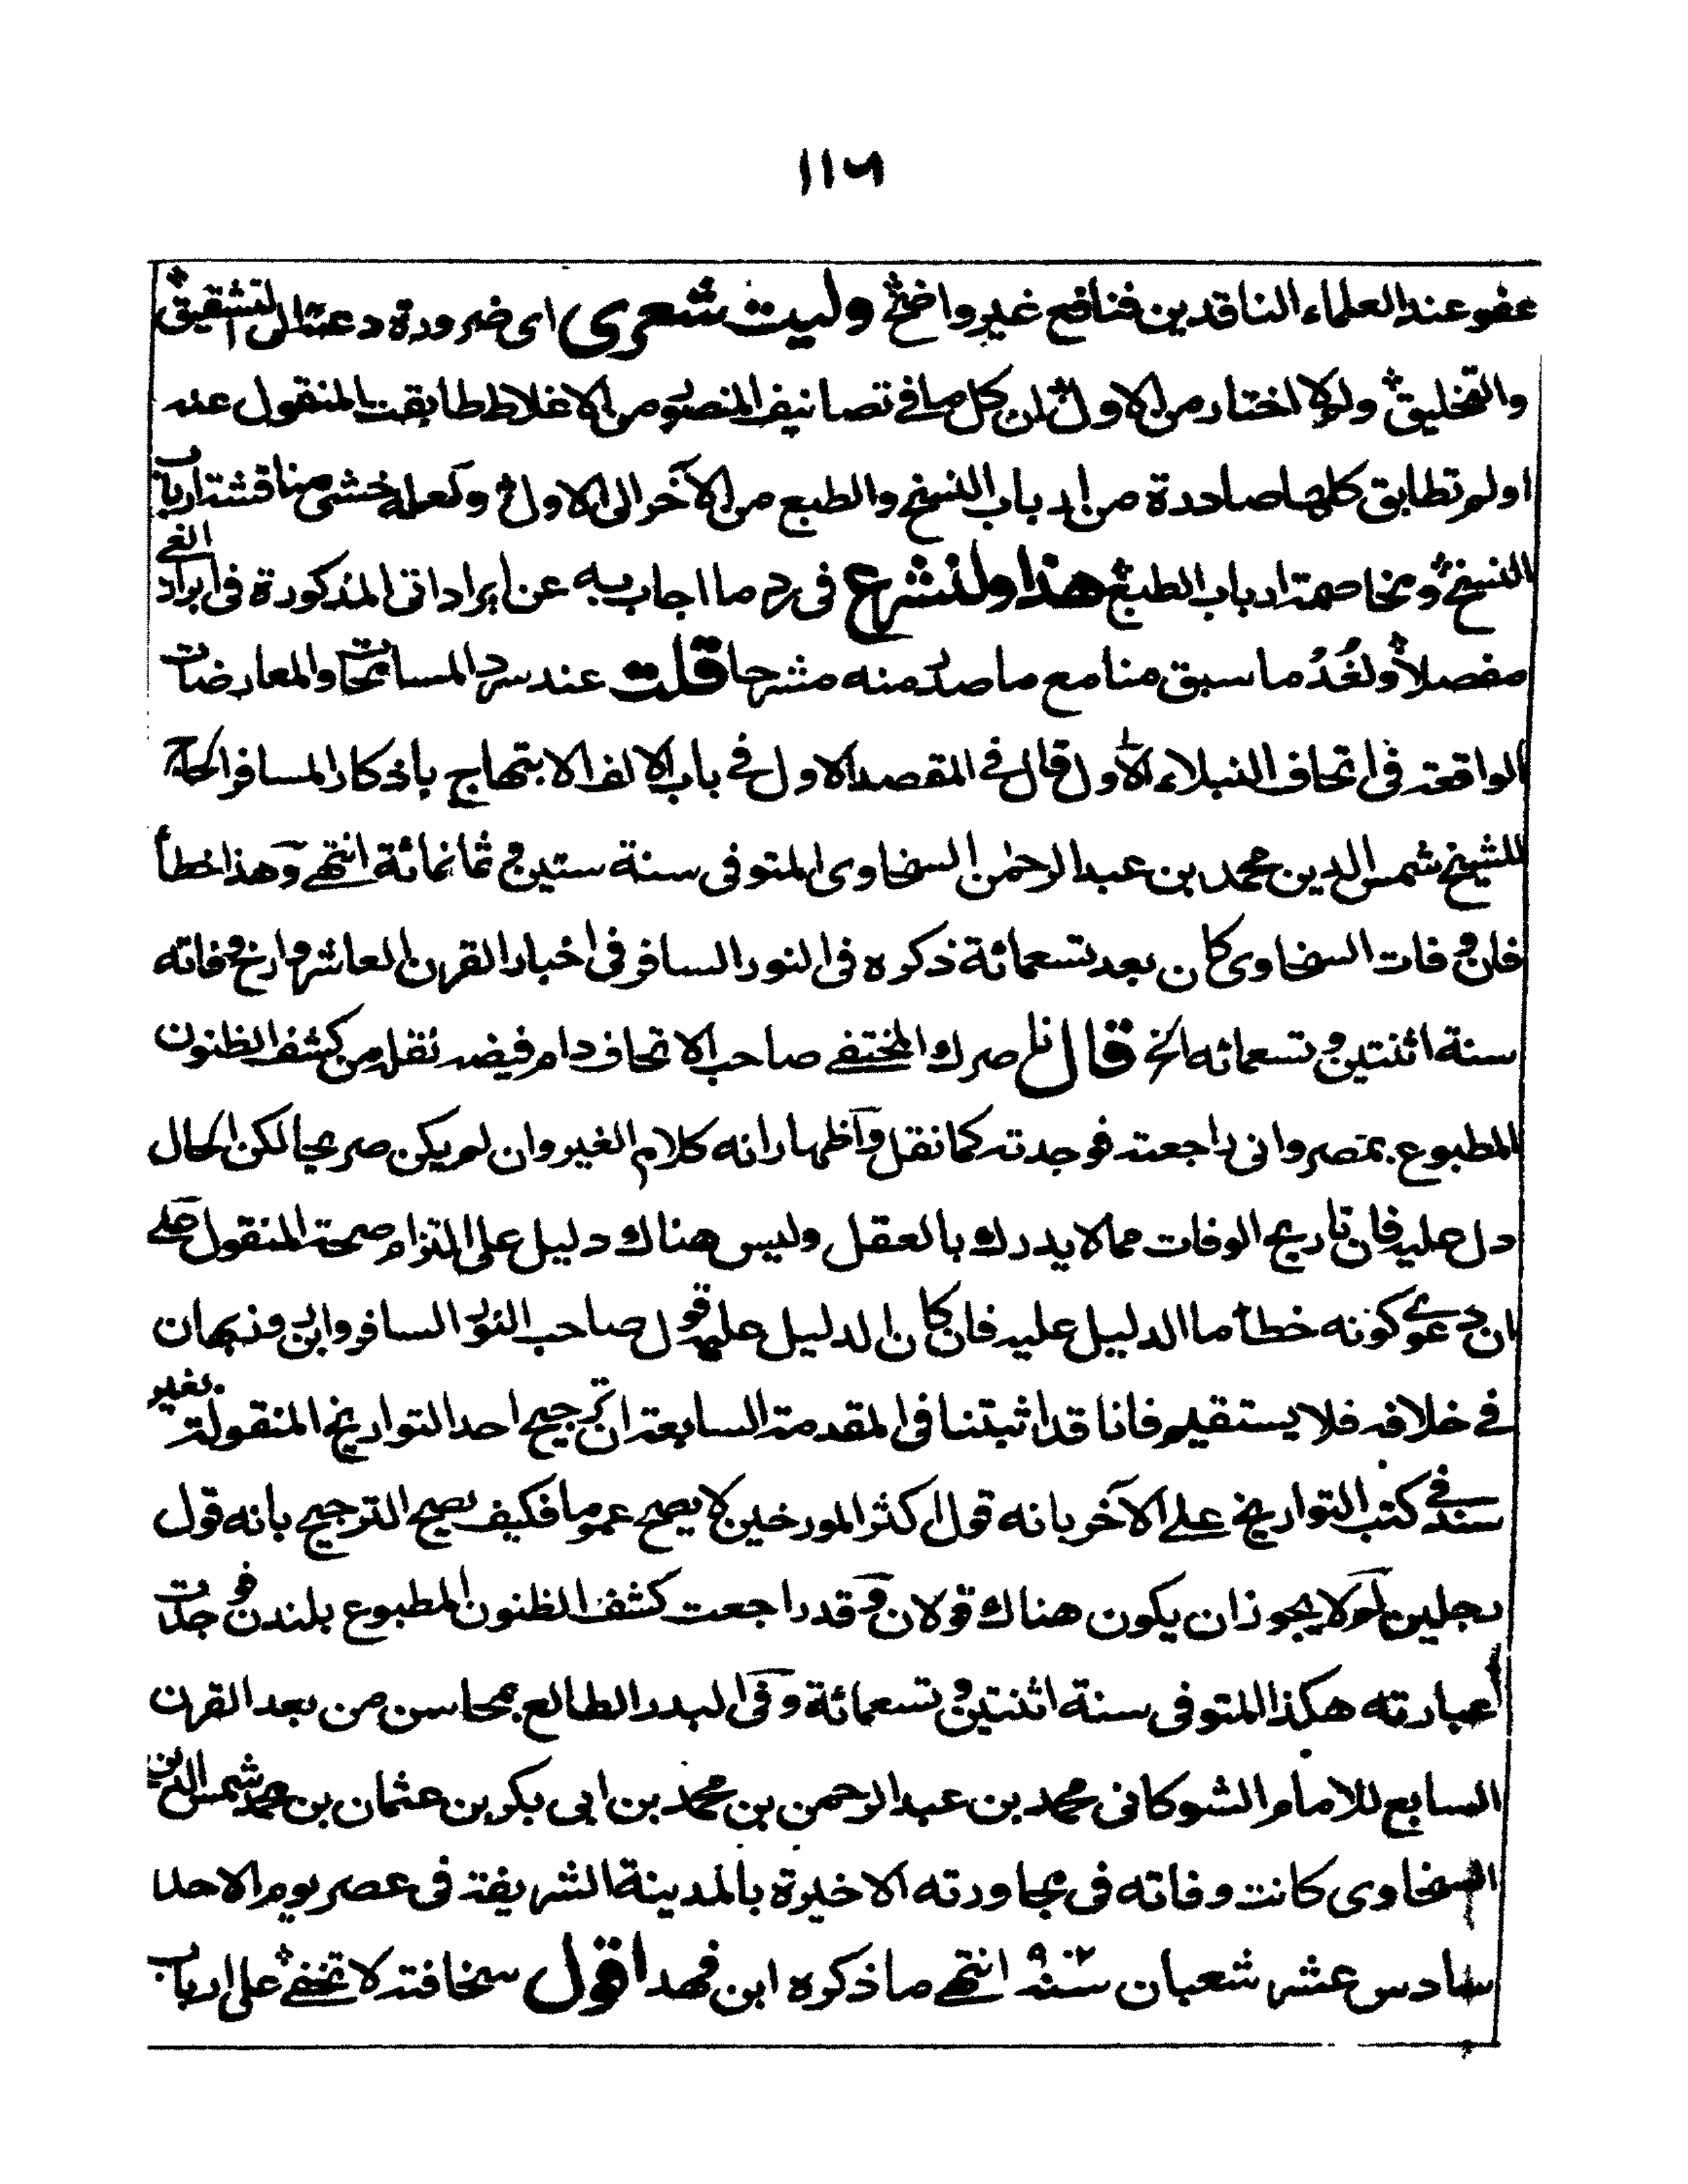 ١١٦
عفو عند العلماء الناقدين فنافع غير واضح وليت شعري اى ضرورة دعت الى التشقيق
والتخليق ولو لا اختار من الاول ان كل ما فى تصانيف المنصور من الاغلاط طابقت المنقول عنه
او لم تطابق كلها صادرة من ارباب النسخ والطبع من الآخر الى الاول ولعله خشى مناقشة ارباب
النسخ ومخاصمة ارباب الطبع هذا ولنشرع فى رد ما اجاب به عن ايراداتى المذكورة فى ابراز الغى
مفصلا ولنعد ما سبق منا مع ما صدر منه مشرحا قلت عند سرد المسامحات والمعارضات
الواقعة فى اتحاف النبلاء الاول قال فى المقصد الاول فى باب الالف الابتهاج باذكار المسافر الحاج
للشيخ شمس الدين محمد بن عبد الرحمٰن السخاوى المتوفى سنة ستين وثمانمائة انتهى وهذا خطأ
فان وفات السخاوى كان بعد تسعمائة ذكره فى النور السافر فى اخبار القرن العاشر وارخ وفاته
سنة اثنتين وتسعمائه الخ قال ناصرك المختفى صاحب الاتحاف دام فيضه نقل من كشف الظنون
المطبوع بمصر وانى راجعته فوجدته كما نقل واظهار انه كلام الغير وان لم يكن صريحا لكن الحال
دل عليه فان تاريخ الوفات مما لا يدرك بالعقل وليس هناك دليل على التزام صحة المنقول على
ان دعوى كونه خطأ ما الدليل عليه فان كان الدليل عليه قول صاحب النور السافر وابن روزبهان
فى خلافه فلا يستقيم فانا قد اثبتنا فى المقدمة السابعة ان ترجيح احد التواريخ المنقولة بغير
سند فى كتب التواريخ على الآخر بانه قول اكثر المورخين لا يصح عموما فكيف يصح الترجيح بانه قول
رجلين لم لا يجوز ان يكون هناك قولان وقد راجعت كشف الظنون المطبوع بلندن فوجدت
عبارته هكذا المتوفى سنة اثنتين وتسعمائة وفى البدر الطالع بمحاسن من بعد القرن
السابع للامام الشوكانى محمد بن عبد الرحمن بن محمد بن ابى بكر بن عثمان بن محمد شمس الدين
السخاوى كانت وفاته فى مجاورته الاخيرة بالمدينة الشريفة فى عصر يوم الاحد
سادس عشر شعبان سنة ٩٠٢ انتهى ما ذكره ابن فهد اقول سخافته لا تخفى على ارباب